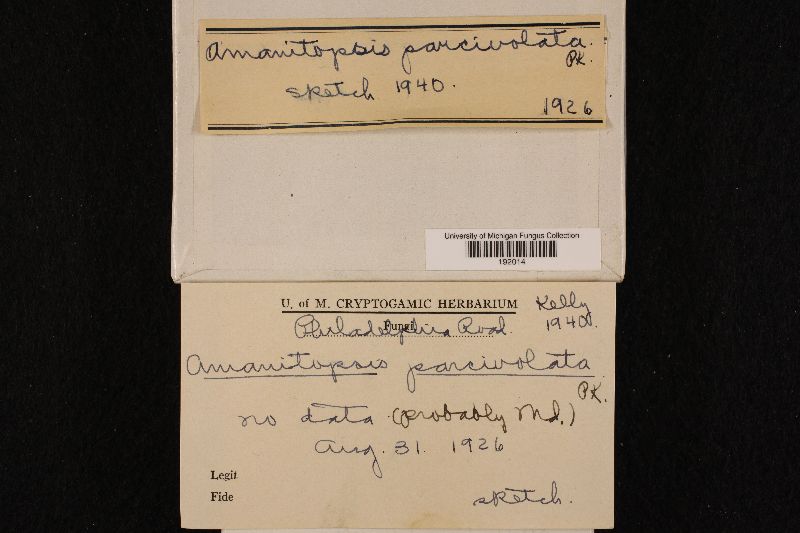 Amanitopsis parcivolata.
PK.
sketch 1940.
1926
University of Michigan Fungus Collection
192014
U. of M. CRYPTOGAMIC HERBARIUM
Kelly
1940.
Fungi
Philadelphia Road.
Amanitopsis parcivolata
PK.
no data (probably Md.)
Aug. 31. 1926
Legit
Fide
sketch.